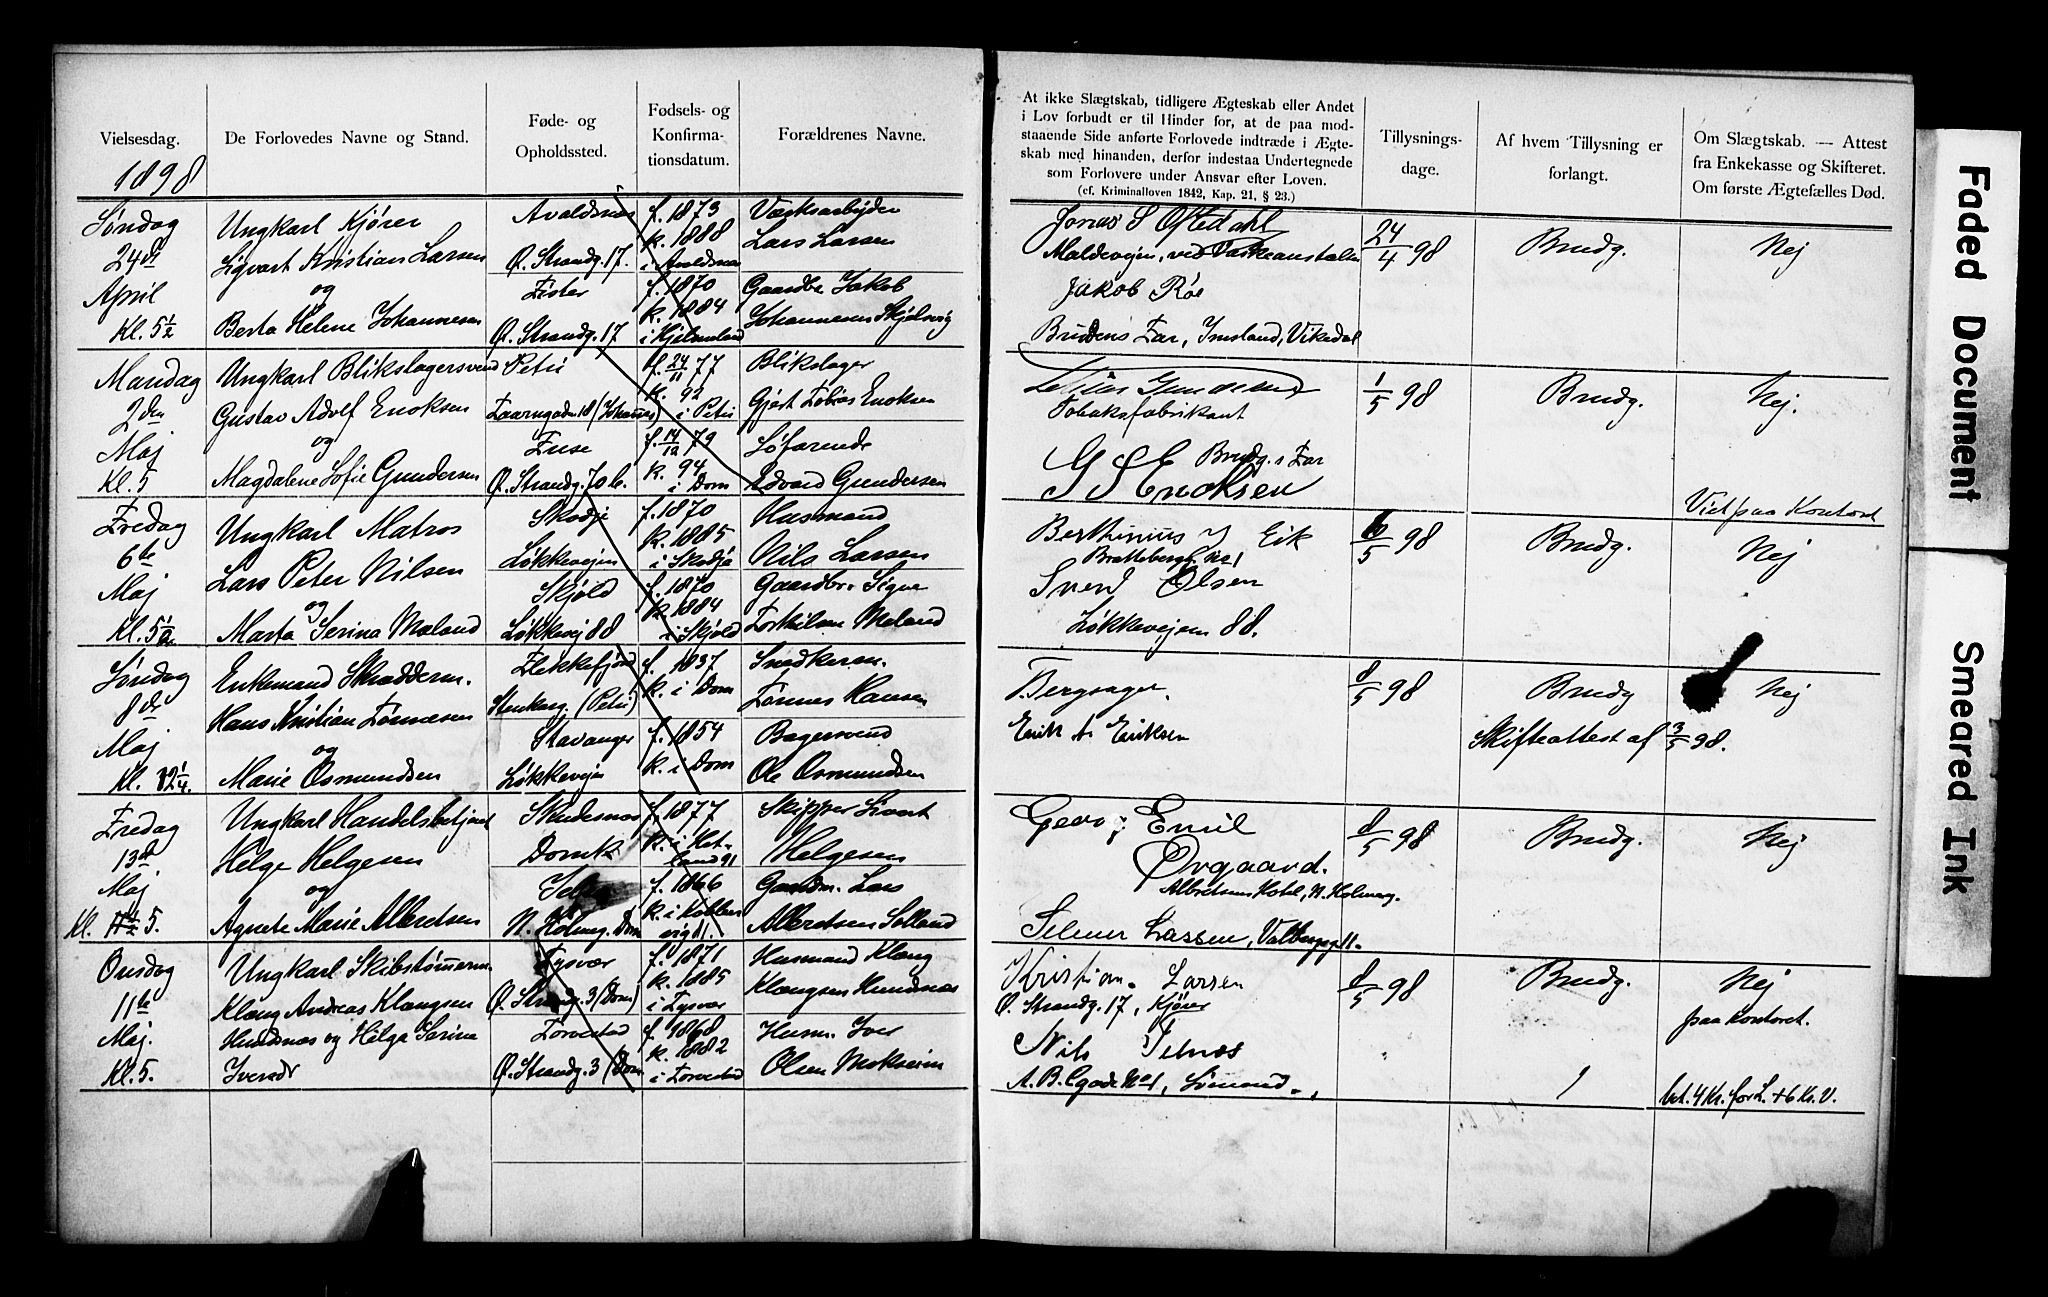 Vielsesdag.
1898
De Forlovedes Navne og Stand.
Føde- og
Opholdssted.
Fødsels- og
Konfirma-
tionsdatum.
Forældrenes Navne.
At ikke Slægtskab, tidligere Ægteskab eller Andet
i Lov forbudt er til Hinder for, at de paa mod-
staaende Side anførte Forlovede indtræde i Ægte-
skab med hinanden, derfor indestaa Undertegnede
som Forlovere under Ansvar efter Loven.
(cf. Kriminalloven 1842, Kap. 21, § 23.)
Tillysnings-
dage.
Af hvem Tillysning er
forlangt.
Om Slægtskab. — Attest
fra Enkekasse og Skifteret.
Om første Ægtefælles Død.
Søndag
24de
April
Kl. 5½
Ungkarl Kjører
Sigvart Kristian Larsen
og
Berta Helene Johannesen
Avaldsnes
Ø. Strandg. 17.
Ø. Strandg. 17
f. 1873
k. 1888
i Avaldsnes
f. 1870
k. 1884
i Hjelmeland
Lars Larsen
Gaardbr Jakob
Johannesen Skjelsvig
Jonas S Oftedahl
Maldevejen, ved Vaskeanstalten
Jakob Røe
Brudens Far, Imsland, Vikedal
24/4 98
Brudg.
Nej
Mandag
2den
Maj
Kl. 5
Ungkarl Blikslagersvend
Gustav Adolf Enoksen
og
Magdalene Sofie Gundersen
Petri
Taarngaden 18 (Johannes)
Fuse
Ø. Strandg. 70 b.
f. 24/11 77
k. 92
i Petri
f. 14/12 79
k. 94
i Dom
Blikslager
Gjert Tobias Enoksen
Søfarende
Edvard Gundersen
Gundersen
Tobaksfabrikant
Brudg.s Far
G S Enoksen
1/5 98
Brudg.
Nej.
Fredag
6te
Maj
Kl. 5½
Ungkarl Matros
Lars Peter Nilsen
og
Marta Serina Maland
Skodje
Løkkevejen
Skjold
Løkkevej 88
f. 1870
k. 1885
i Skodje
f. 1870
k. 1884
i Skjold
Husmand
Nils Larsen
Gaardbr. Signe
Torkilsen Maland
Berthinius J Eik
Svend Olsen
Løkkevejen 88.
/5 98
Brudg.
Viet paa Kontoret
Nej
Søndag
8de
Maj
Kl. 12¼.
Enkemand Skrædderm.
Hans Kristian Tønnesen
og
Marie Osmundsen
Flekkefjord
Stenkarg. (Petri)
Stavanger
Løkkevejen
f. 1837
k. i Dom
f. 1854
k. i Dom
Snedkerm.
Tønnes Hansen
Bagersvend
Ole Osmundsen
T. Bergsager.
Erik A Eriksen
8/5 98
Brudg
Skifteattest af 3/5 98.
Nej
Fredag
13de
Maj
Kl. 5.
Ungkarl Handelsbetjent
Helge Helgesen
og
Agnete Marie Albretsen
Skudesnes
Domk
N. Holmeg. Dom
f. 1877
k. i Het-
land 91
f. 1866
Skipper Sivert
Helgesen
Gaardm. Lars
Albretsen Solland
Georg Emil
Ovgaard.
Albretsens Hotel, N. Holmeg.
Selmer Lassen, Valbergg 11.
8/5 98
Brudg.
Nej
Onsdag
11te
Maj.
Kl. 5.
Ungkarl Skibstømerm.
Klang Andreas Klangsen
Hundsnes og Helga Serine
Iversdr
Tysvær
Ø. Strandg. 3 (Dom)
Torvestad
Ø. Strandg. 3 (Dom
f. 1871
k. 1885
i Tysvær
f. 1868
k. 1882
i Torvestad
Husmand Klang
Klangsen Hundsnes
Husm. Iver
Olsen Mokseim
Kristian Larsen
Ø. Strandg. 17, Kjører
Nils Selnes
8/5 98
Brudg.
Nej
paa Kontoret.
bet. 4 Kr. for L. + 6 Kr. V.
Faded Document
Smeared Ink